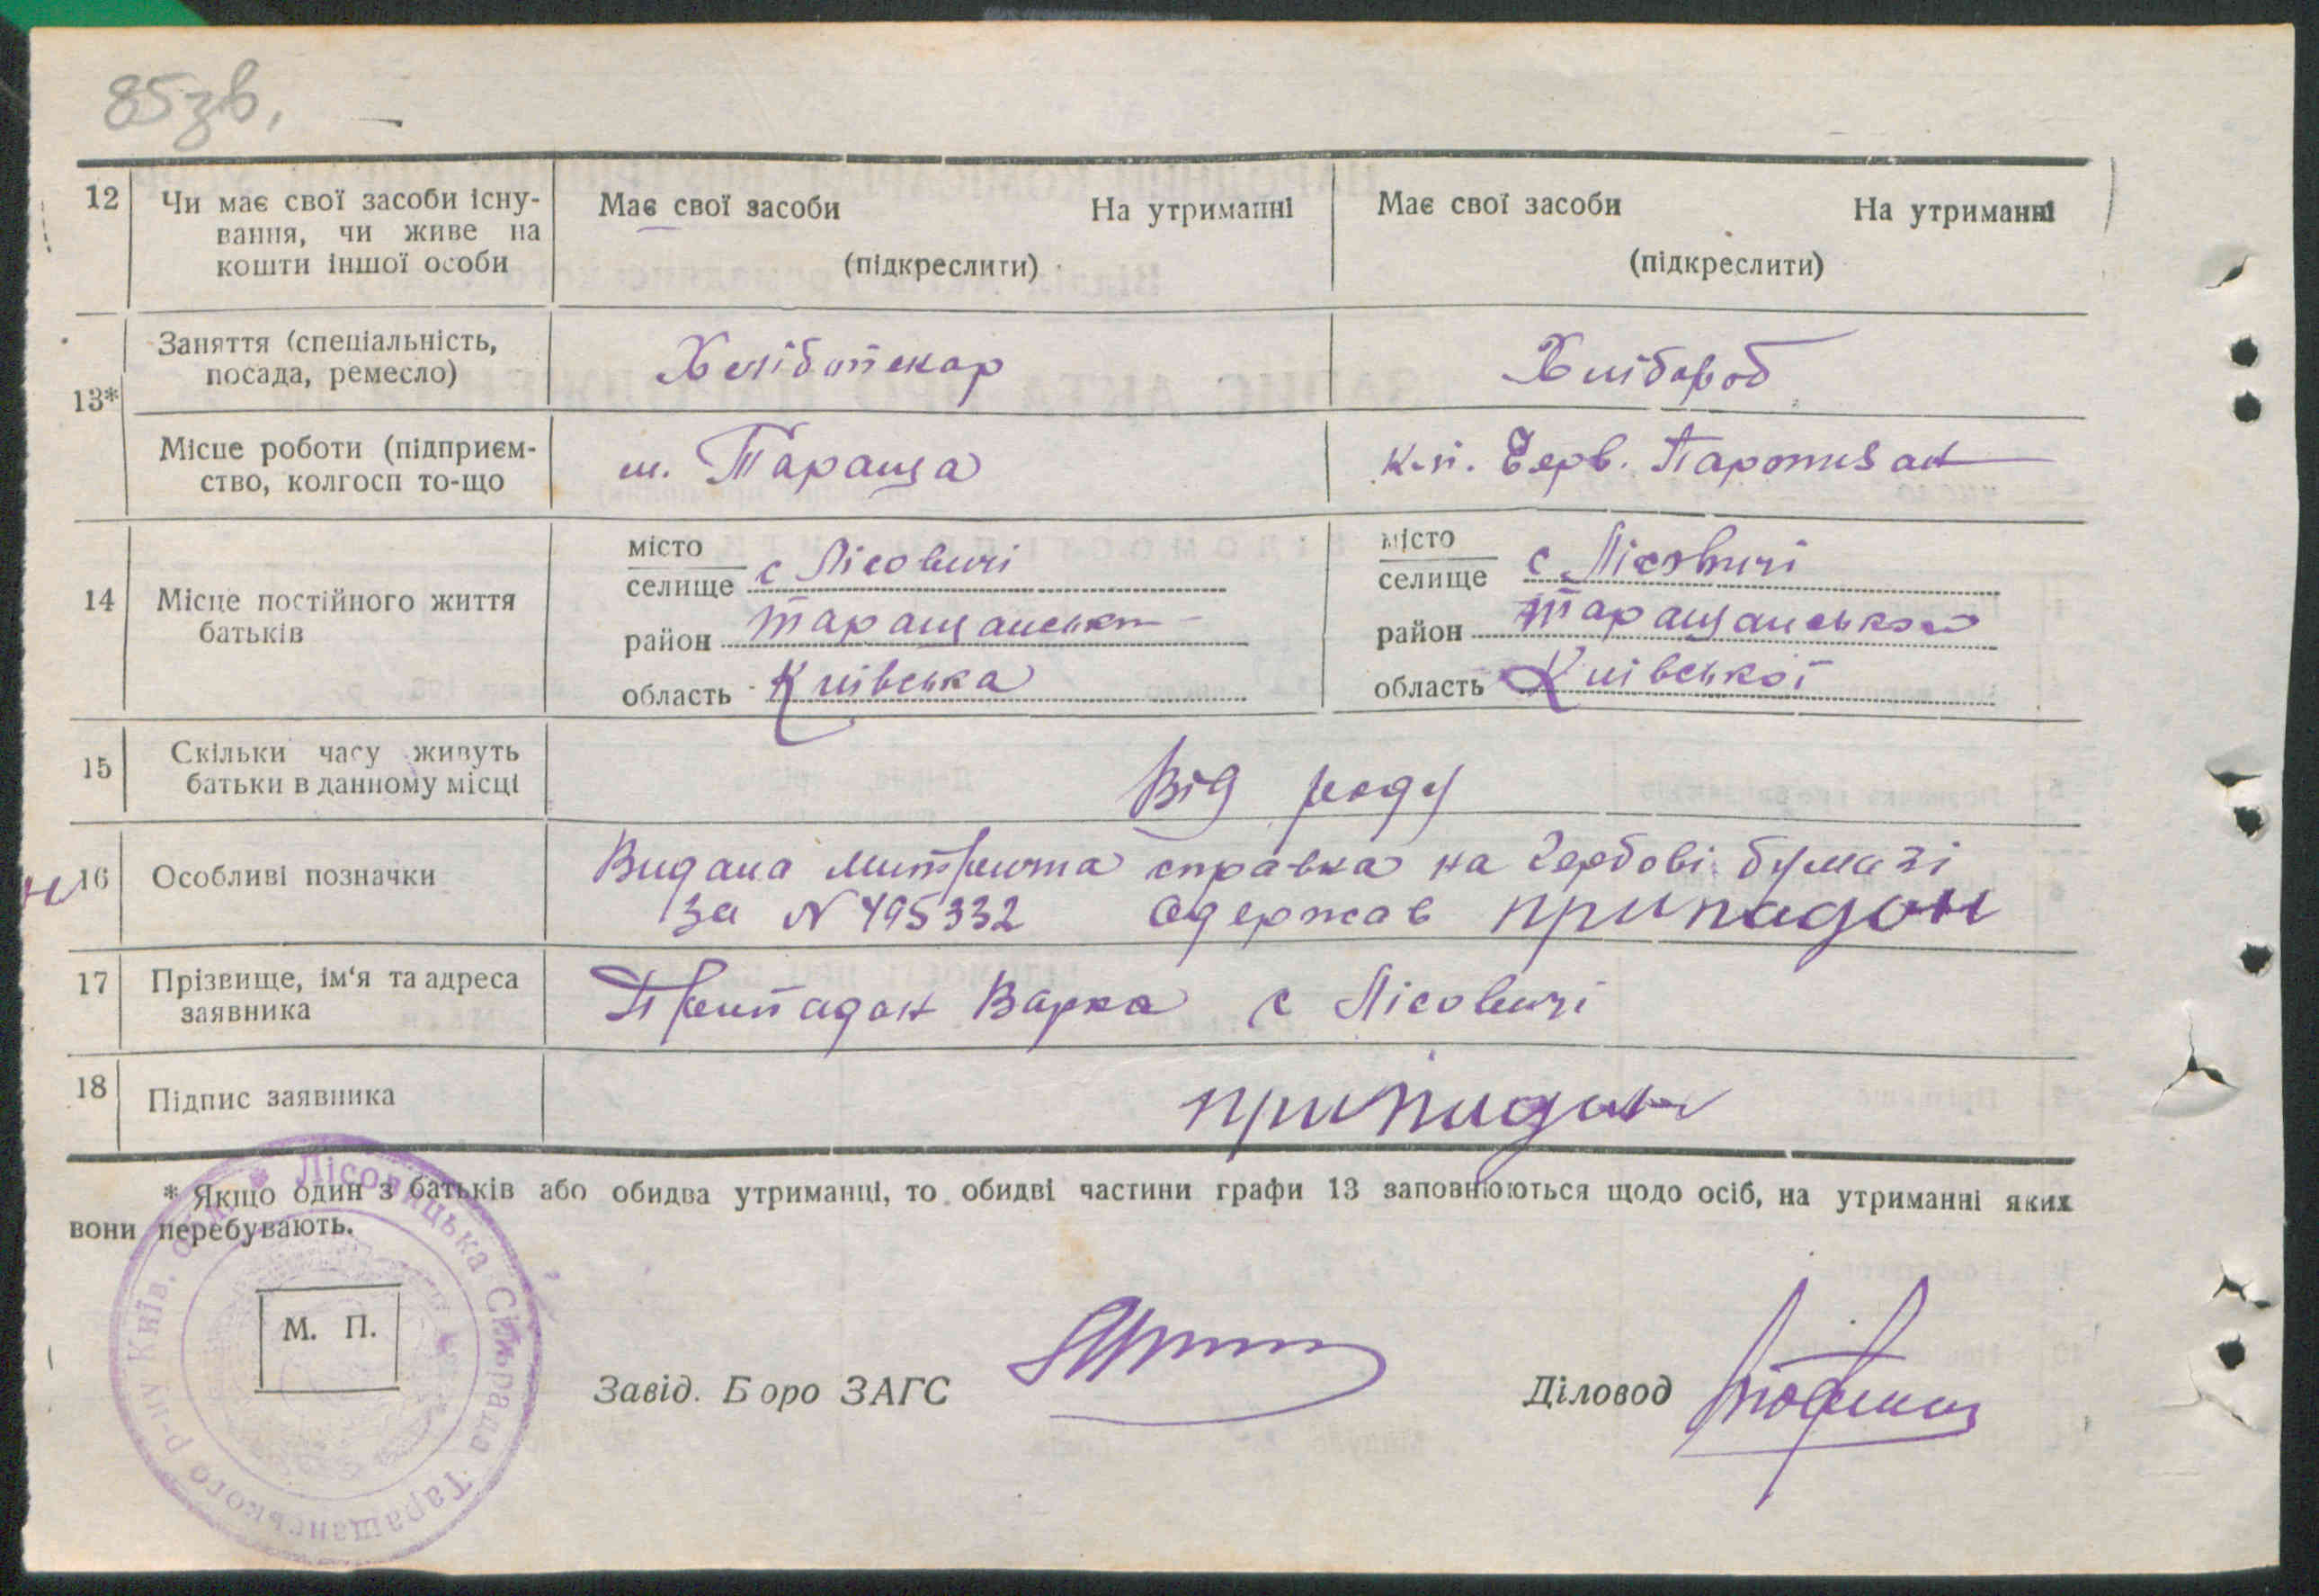 85зв.
12 Чи має свої засоби існу-
вання, чи живе на
кошти іншої особи
Має свої засоби На утриманні
(підкреслити)
Має свої засоби На утриманні
(підкреслити)
13*
Заняття (спеціальність,
посада, ремесло)
Хлібопекар
Хлібороб
Місце роботи (підприєм-
ство, колгосп то-що
м. Тараща
к-п. Черв. Партизан
14 Місце постійного життя
батьків
місто
селище с Лісовичі
район Таращанськ
область Київська
місто
селище с Лісовичі
район Таращанського
область Київської
15 Скільки часу живуть
батьки в данному місці
Від роду
16 Особливі позначки
Видана метрична справка на гербові бумазі
За N 495332 Одержав Припадон
17 Прізвище, ім'я та адреса
заявника
Припадон Варка с Лісовичі
18 Підпис заявника
Припадон
* Якщо один з батьків або обидва утриманці, то обидві частини графи 13 заповнюються щодо осіб, на утриманні яких
вони перебувають.
Лісовицька Сільрада Таращанського р-ну Київ. обл.
М. П.
Завід. Б оро ЗАГС
Діловод